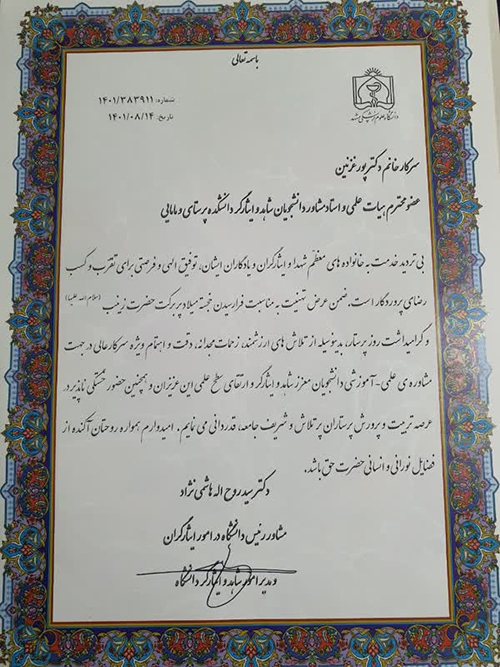 باسمه تعالی
شماره: ۱۴۰۱/۳۸۳۹۱۱
تاریخ: ۱۴۰۱/۰۸/۱۴
دانشگاه علوم پزشکی مشهد
سرکار خانم دکتر پورغزنین
عضو محترم هیات علمی و استاد مشاور دانشجویان شاهد و ایثارگر دانشکده پرستاری و مامایی
بی تردید خدمت به خانواده های معظم شهدا و ایثارگران و یادگاران ایشان، توفیق الهی و فرصتی برای تقرب و کسب
رضای پروردگار است. ضمن عرض تهنیت به مناسبت فرارسیدن خجسته میلاد پر برکت حضرت زینب (سلام الله علیها)
و گرامیداشت روز پرستار، بدینوسیله از تلاش های ارزشمند، زحمات مجدانه، دقت و اهتمام ویژه سرکارعالی در جهت
مشاوره ی علمی-آموزشی دانشجویان معزز شاهد و ایثارگر و ارتقای سطح علمی این عزیزان و همچنین حضور خستگی ناپذیر در
عرصه تربیت و پرورش پرستاران پر تلاش و شریف جامعه، قدردانی می نمایم. امیدوارم همواره روحتان آکنده از
فضایل نورانی و انسانی حضرت حق باشد.
دکتر سید روح اله هاشمی نژاد
مشاور رئیس دانشگاه در امور ایثارگران
و مدیر امور شاهد و ایثارگر دانشگاه